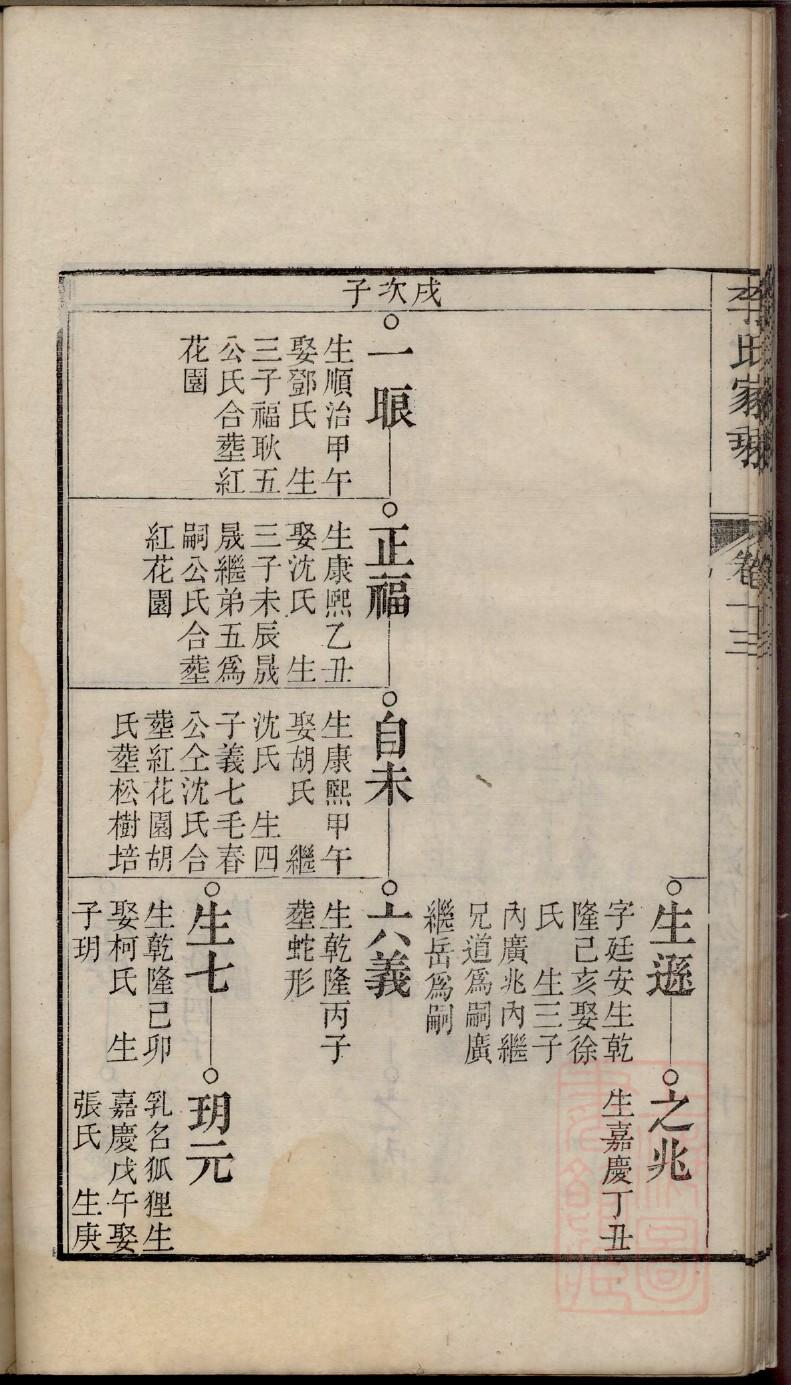 李氏家乘
卷十三
生遜
字廷安生乾
隆己亥娶徐
氏　生三子
內廣兆內繼
兄道爲嗣廣
繼岳爲嗣
之兆
生嘉慶丁丑
戌次子
一眼
生順治甲午
娶鄧氏　生
三子福耿五
公氏合塟紅
花園
正福
生康熙乙丑
娶沈氏　生
三子未辰晟
晟繼弟五爲
嗣公氏合塟
紅花園
自未
生康熙甲午
娶胡氏　繼
沈氏　生四
子義七毛春
公仝沈氏合
塟紅花園胡
氏塟松樹培
六義
生乾隆丙子
塟蛇形
生七
生乾隆己卯
娶柯氏　生
子玥
玥元
乳名狐狸生
嘉慶戊午娶
張氏　生庚